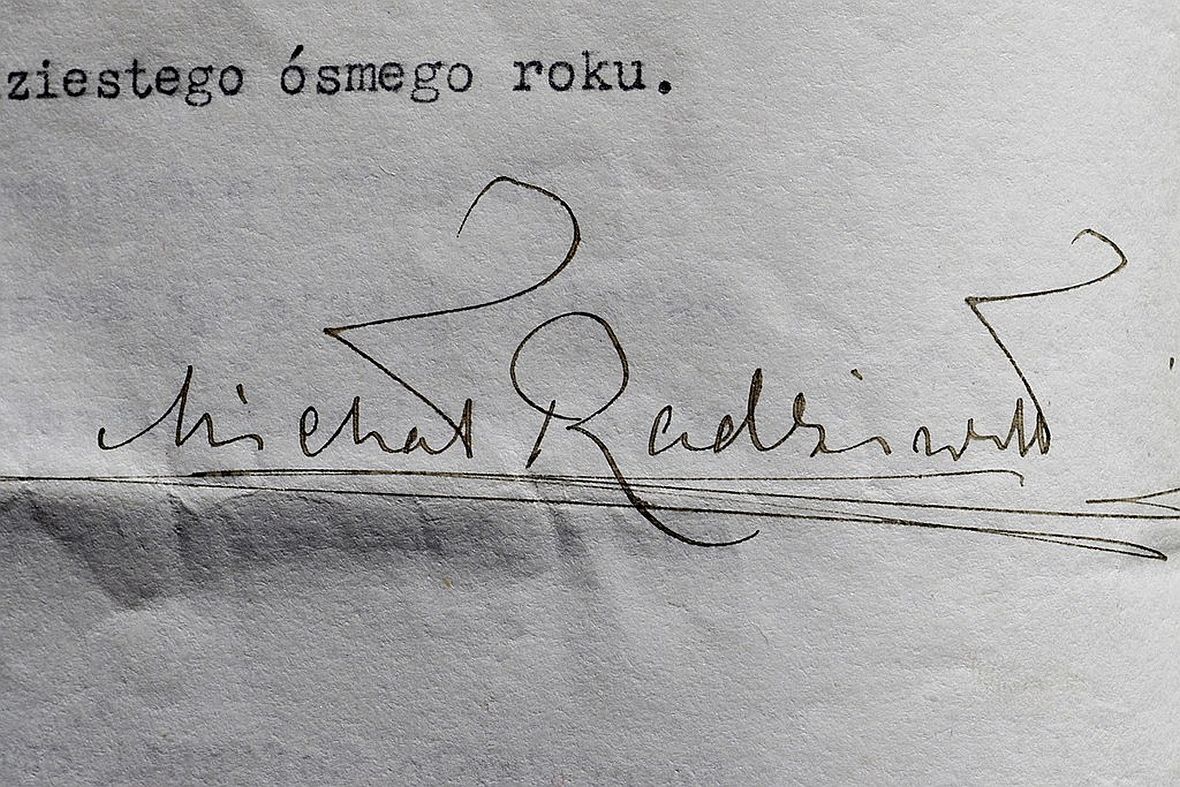 ziestego ósmego roku.
Michał Radziwiłł